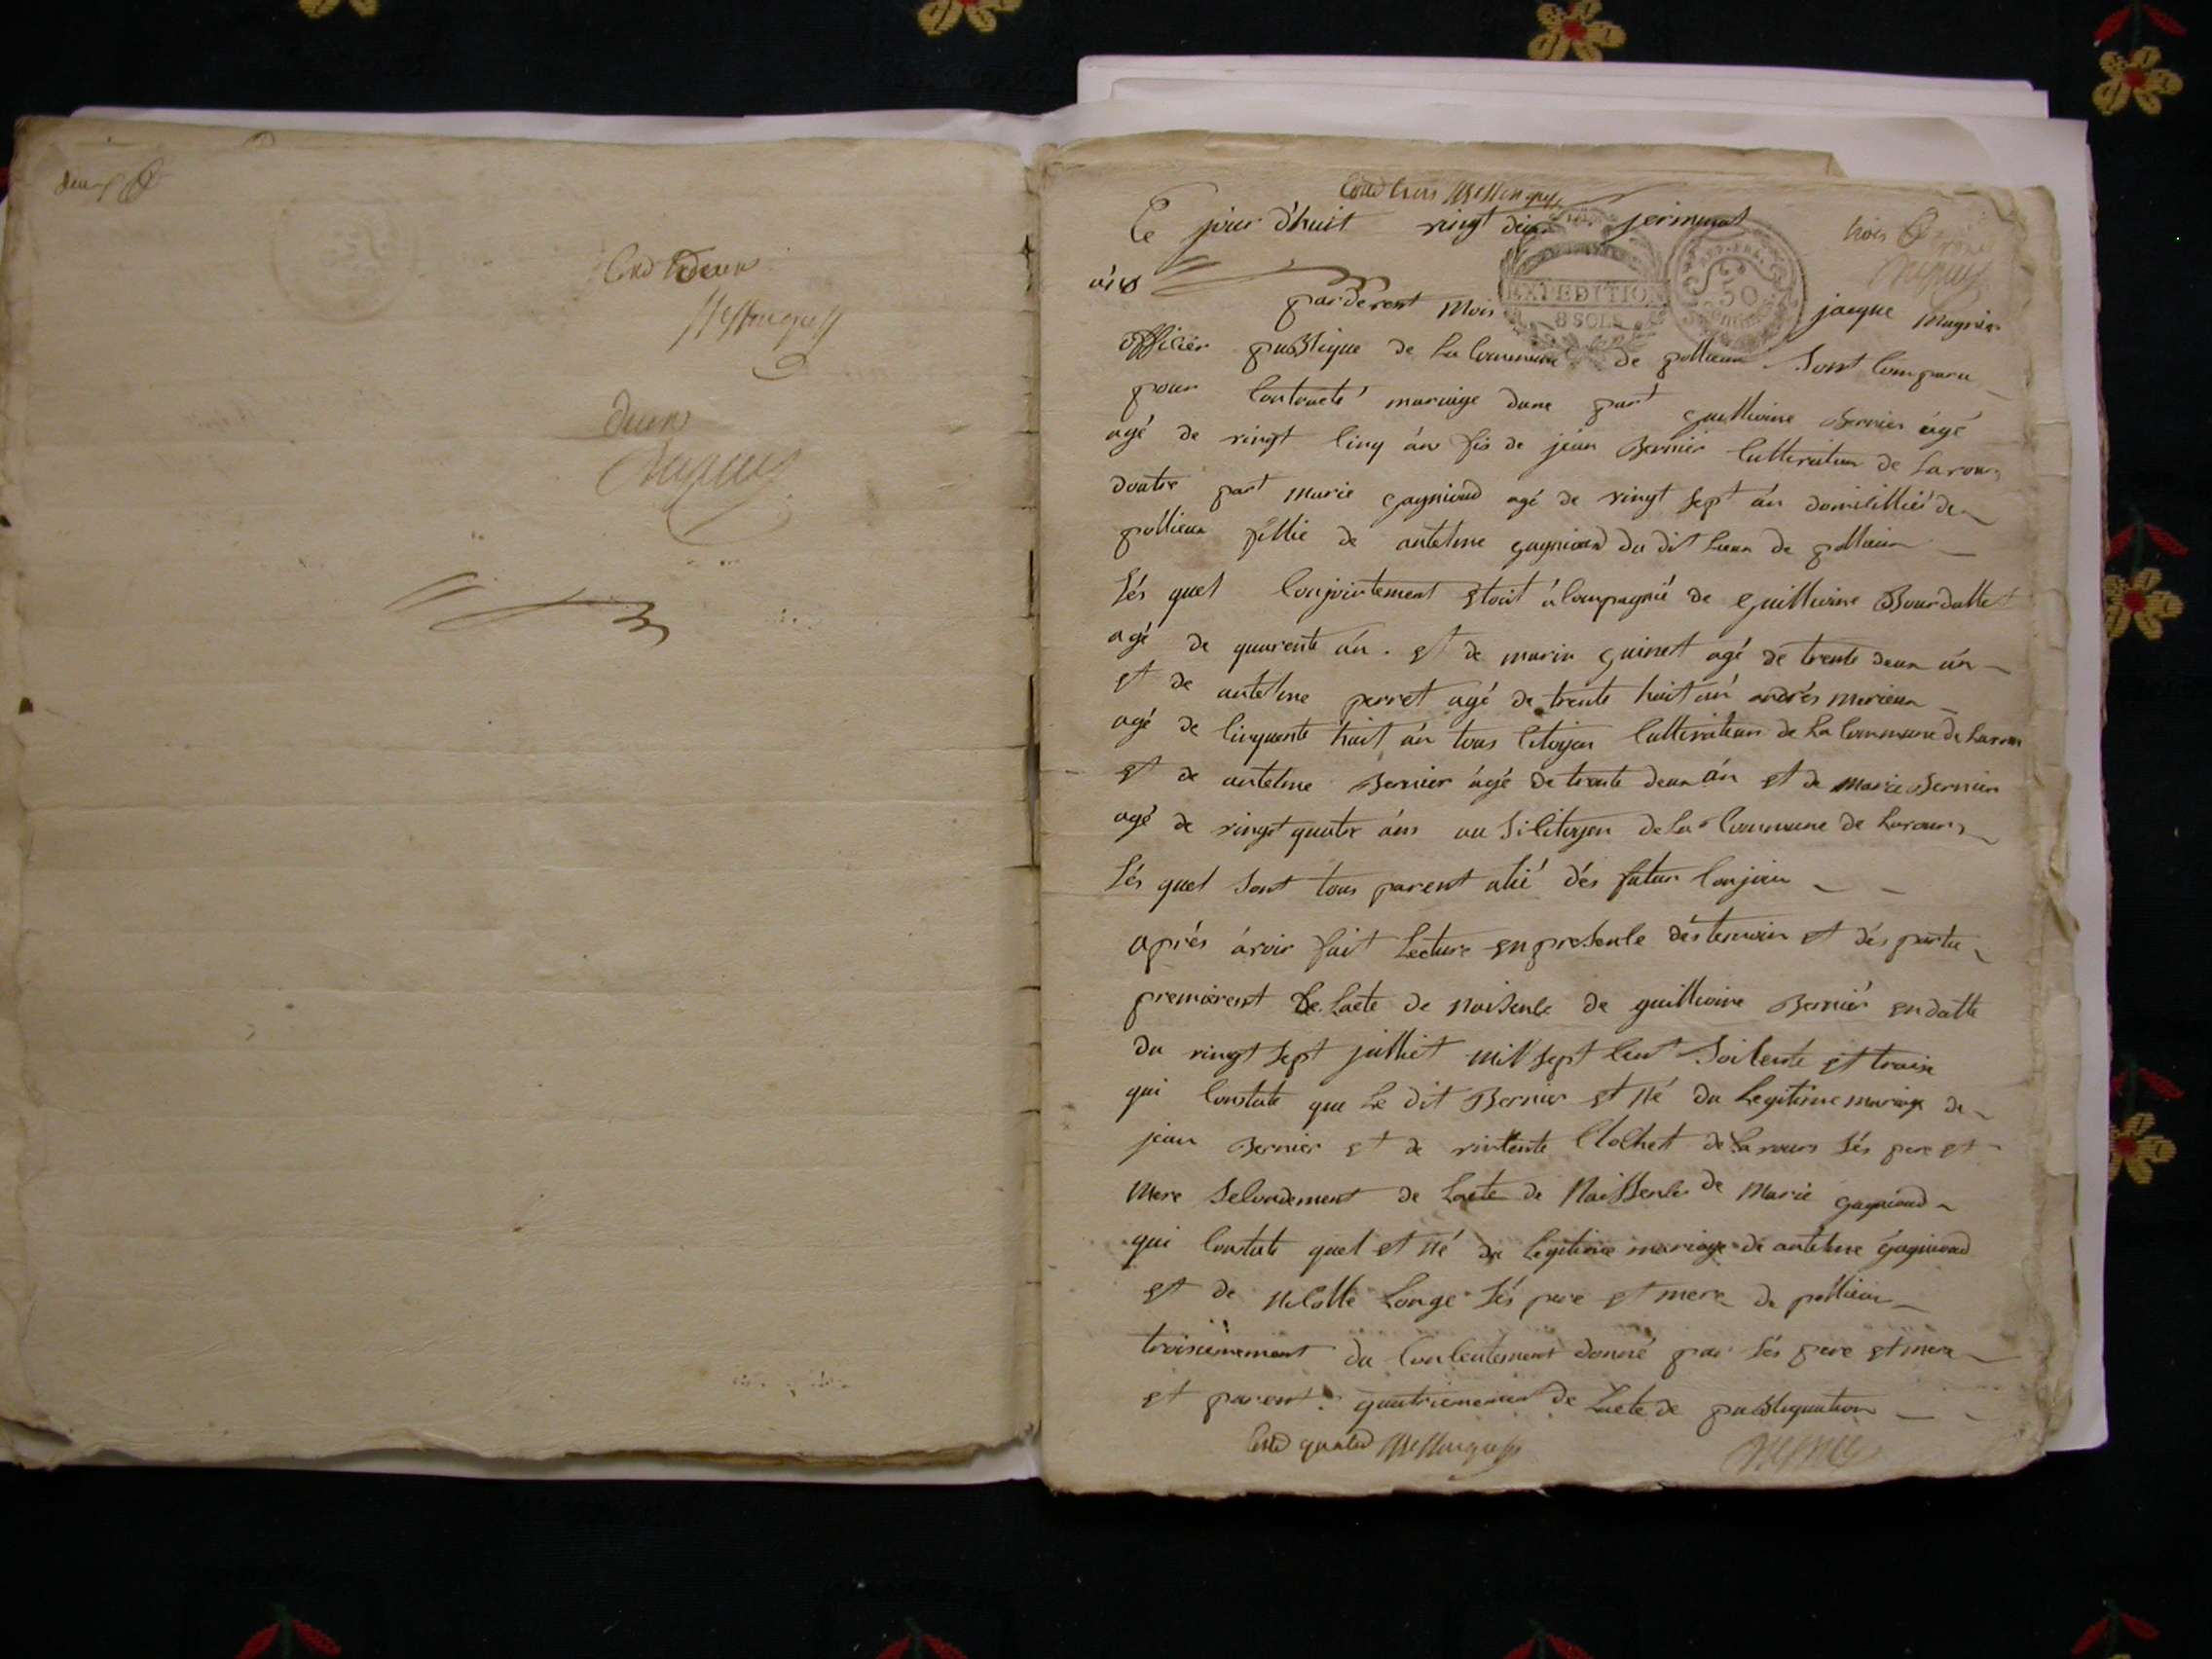 deux
Coté deux
deux
Coté trois
trois
Ce jour d'huit vingt dix jerminal
EXPEDITION
8 SOLS
50
pardevent Mois jacque Magnin
officier publique de La Commune de pollieux Sont Comparu
pour Contracté mariage dune part guillieime Bernier ágé
agé de vingt Cinq án fis de jean Bernier Cultivateur de Lavours
doutre part Marie gagnioud agé de vingt sept án domicillié de
pollieux fillie de antelme gagnioud du dit Lieux de pollieux
Lés quel Conjointement Etoit áCompagnié de guillieime Bourdallet
agé de quarente án. Et de marin guinet agé de trente deux án
Et de antelme perret agé de trente huit án andrés marieux
agé de Cinquente huit án tous Citoyen Cultivateur de La Commune de Lavours
Et de antelme Bernier ágé de trente deux án et de Marie Bernier
agé de vingt quatre áns au Si Citoyen de La Commune de Lavours
Lés quel Sont tous parent alié dés futur Conjoin
aprés ávoir fait Lecture en presence déstemoin Et dés partie
premierent de Lacte de Naisence de guillieime Bernier en datte
du vingt sept julliet mil sept Cent Soicente Et traise
qui Constate que Le dit Bernier Et Né du Legitime mariage de
jean Bernier Et de vincente Clochet de Lavours Sés pere Et
Mere Secondement de Lacte de Naissence de Marie gagnioud
qui Constate quel et Né du Legitime mariage de antelme gagnioud
Et de Nicolle Longe Sés pere Et mere de pollieux
troisiémement du Concentement donné par Sés pere Et mere
Et parent: quatriemement de Lacte de publiquation
Coté quatre